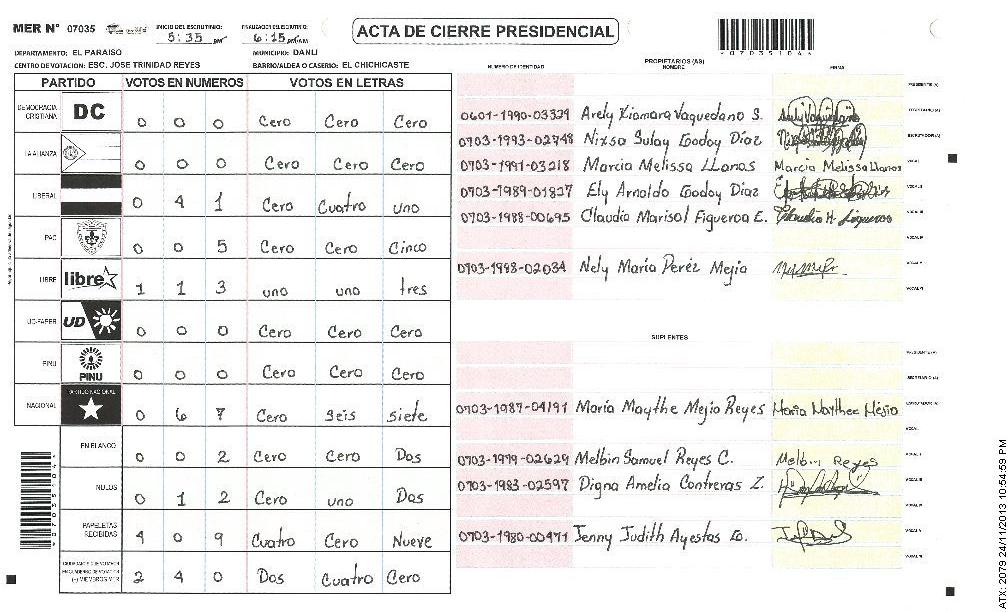 MER N° 07035
INICIO DEL ESCRUTINIO: 5:35 pm
FINALIZACION DEL ESCRUTINIO: 6:15 pm/AM
ACTA DE CIERRE PRESIDENCIAL
DEPARTAMENTO: EL PARAISO
MUNICIPIO: DANLI
CENTRO DE VOTACION: ESC. JOSE TRINIDAD REYES
BARRIO/ALDEA O CASERIO: EL CHICHICASTE
PARTIDO VOTOS EN NUMEROS VOTOS EN LETRAS
DEMOCRACIA CRISTIANA DC 0 0 0 Cero Cero Cero
LA ALIANZA 0 0 0 Cero Cero Cero
LIBERAL 0 4 1 Cero Cuatro uno
PAC 0 0 5 Cero Cero Cinco
LIBRE libre 1 1 3 uno uno tres
UD-FAPER UD 0 0 0 Cero Cero Cero
PINU PINU 0 0 0 Cero Cero Cero
NACIONAL PARTIDO NACIONAL 0 6 7 Cero Seis siete
EN BLANCO 0 0 2 Cero Cero Dos
NULOS 0 1 2 Cero uno Dos
PAPELETAS RECIBIDAS 4 0 9 Cuatro Cero Nueve
2 4 0 Dos Cuatro Cero
NUMERO DE IDENTIDAD PROPIETARIOS (AS) NOMBRE FIRMA
PRESIDENTE (A)
0601-1990-03329 Arely Xiomara Vaquedano S. SECRETARIO (A)
0703-1993-02748 Nixsa Sulay Godoy Díaz ESCRUTADOR (A)
0703-1991-03218 Marcia Melissa LLanos Marcia Melissa LLanos VOCAL I
0703-1989-01827 Ely Arnoldo Godoy Díaz
0703-1988-00695 Claudia Marisol Figueroa E. Claudia M. Figueroa VOCAL III
VOCAL IV
0703-1998-02034 Nely María Peréz Mejia VOCAL V
VOCAL VI
SUPLENTES
PRESIDENTE (A)
SECRETARIO (A)
0703-1987-04191 María Maythe Mejia Reyes Maria Maythee Mejia
0703-1979-02629 Melbin Samuel Reyes C. Melbin Reyes
0703-1983-02597 Digna Amelia Contreras Z.
0703-1980-00471 Jenny Judith Ayestas G.
*07035104*
ATX: 2079 24/11/2013 10:54:59 PM